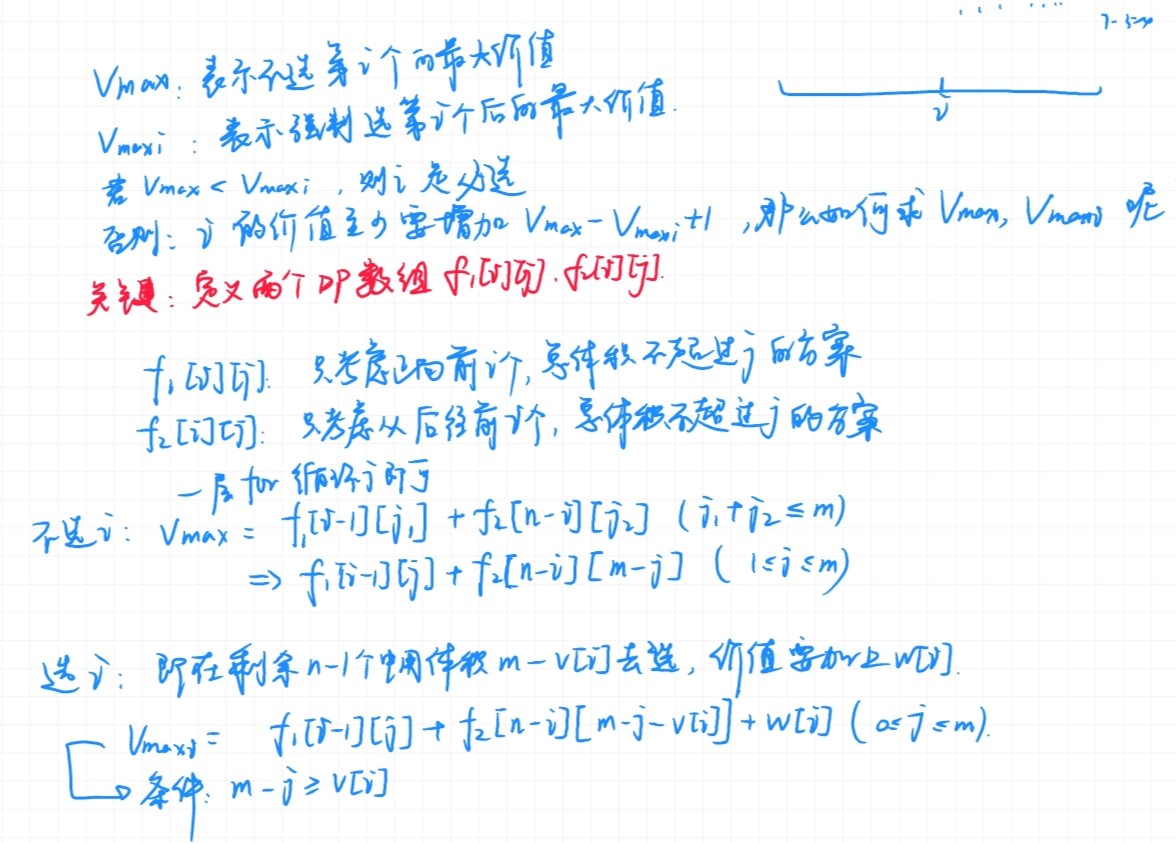 Vmax: 表示不选第i个的最大价值
Vmaxi: 表示强制选第i个后的最大价值.
i
若 Vmax < Vmaxi, 则i是必选
否则: i 的价值至少要增加 Vmax - Vmaxi + 1, 那么如何求 Vmax, Vmaxi 呢
关键: 定义两个DP数组 f₁[i][j]. f₂[i][j].
f₁[i][j]: 只考虑 前i个, 总体积不超过j的方案
f₂[i][j]: 只考虑从后往前i个, 总体积不超过j的方案
一层for循环j即可
不选i: Vmax = f₁[i-1][j₁] + f₂[n-i][j₂] (j₁+j₂≤m)
⇒ f₁[i-1][j] + f₂[n-i][m-j] (1≤j≤m)
选i: 即在剩余n-1个中用体积m-v[i]去选, 价值要加上w[i].
Vmaxi = f₁[i-1][j] + f₂[n-i][m-j-v[i]] + w[i] (0≤j≤m).
条件: m-j≥v[i]